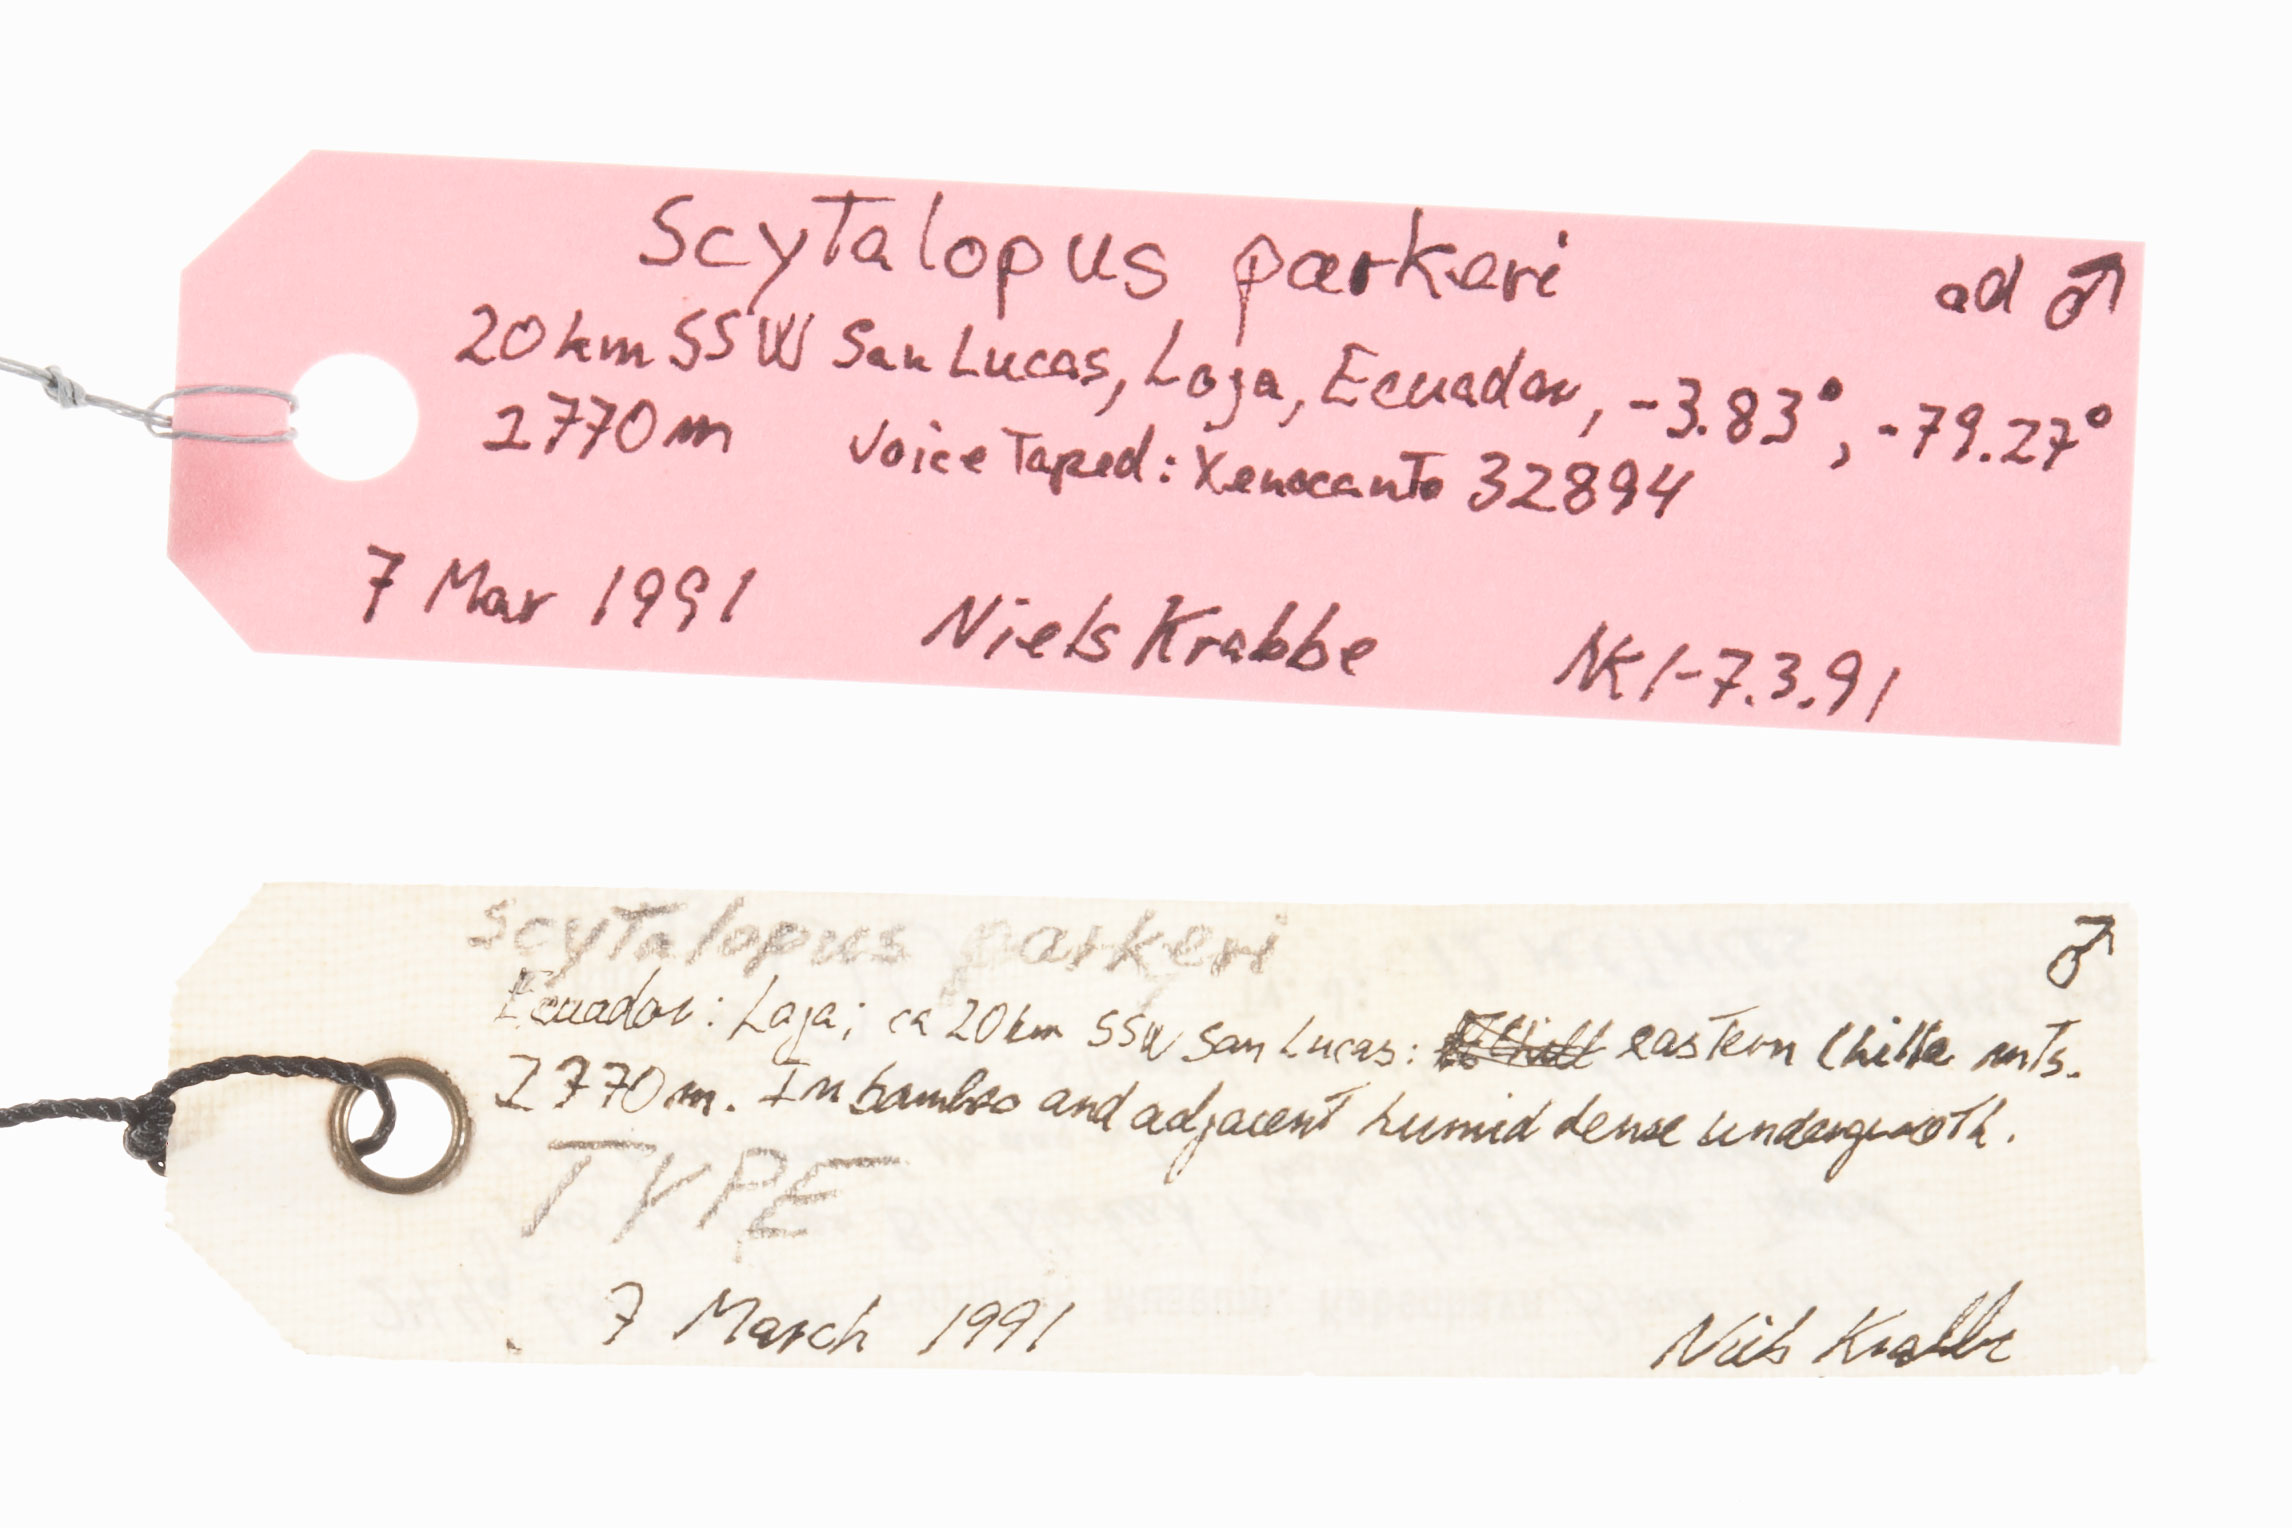 Scytalopus parkeri ad ♂
20 km SSW San Lucas, Loja, Ecuador, -3.83°, -79.27°
2770 m Voice Taped: Xenocanto 32894
7 Mar 1991 Niels Krabbe NK1-7.3.91
Scytalopus parkeri ♂
Ecuador: Loja; ca 20 km SSW San Lucas: eastern Chilla mts.
2770 m. In bamboo and adjacent humid dense undergrowth.
TYPE
7 March 1991 Niels Krabbe